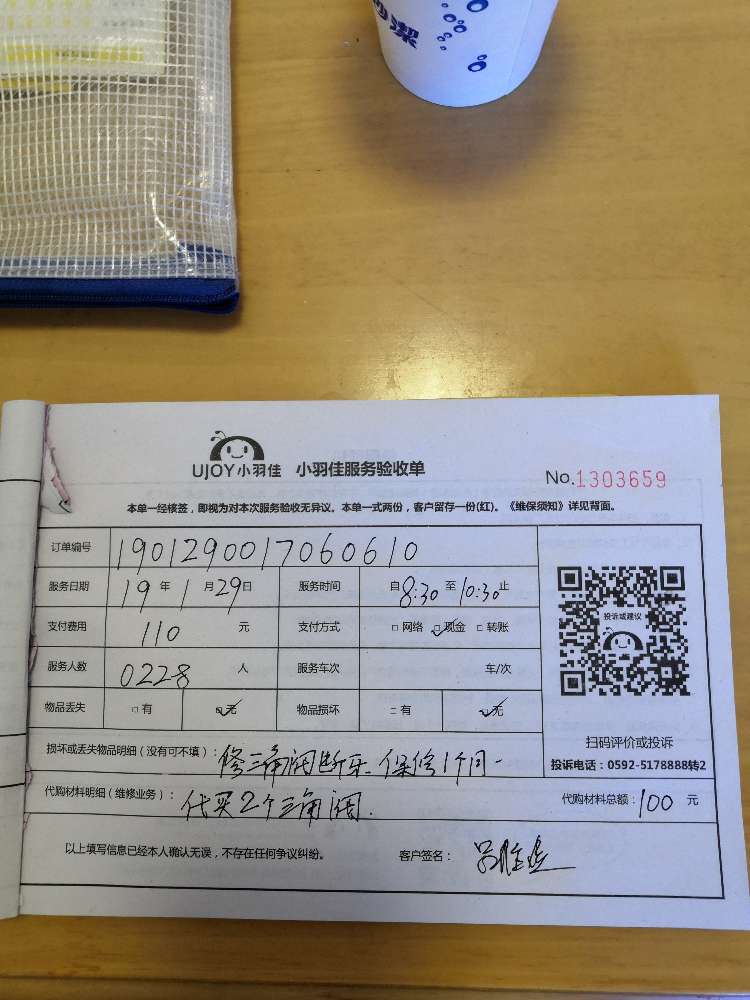 UJOY小羽佳 小羽佳服务验收单
No.1303659
本单一经核签，即视为对本次服务验收无异议。本单一式两份，客户留存一份(红)。《维保须知》详见背面。
订单编号 1901290017060610
服务日期 19年1月29日 服务时间 自8:30至10:30止
支付费用 110 元 支付方式 □网络 ☑现金 □转账
服务人数 0228 人 服务车次 车/次
物品丢失 □有 ☑无 物品损坏 □有 ☑无
投诉或建议
扫码评价或投诉
投诉电话：0592-5178888转2
损坏或丢失物品明细（没有可不填）：修三角阀断牙 保修1个月
代购材料明细（维修业务）：代买2个三角阀. 代购材料总额：100元
以上填写信息已经本人确认无误，不存在任何争议纠纷。 客户签名：